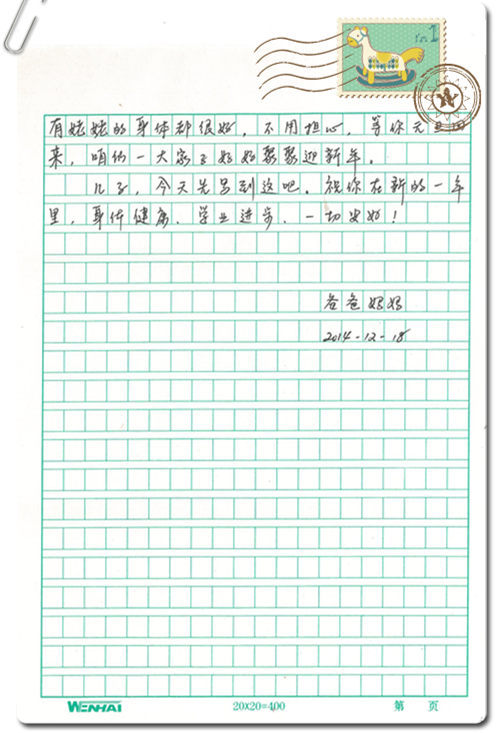 有姥姥的身体都很好，不用担心，等你元旦回
来，咱们一大家子好好聚聚迎新年。
儿子，今天先写到这吧。祝你在新的一年
里，身体健康、学业进步、一切安好！
爸爸妈妈
2014-12-18
WENHAI 20X20=400 第 页